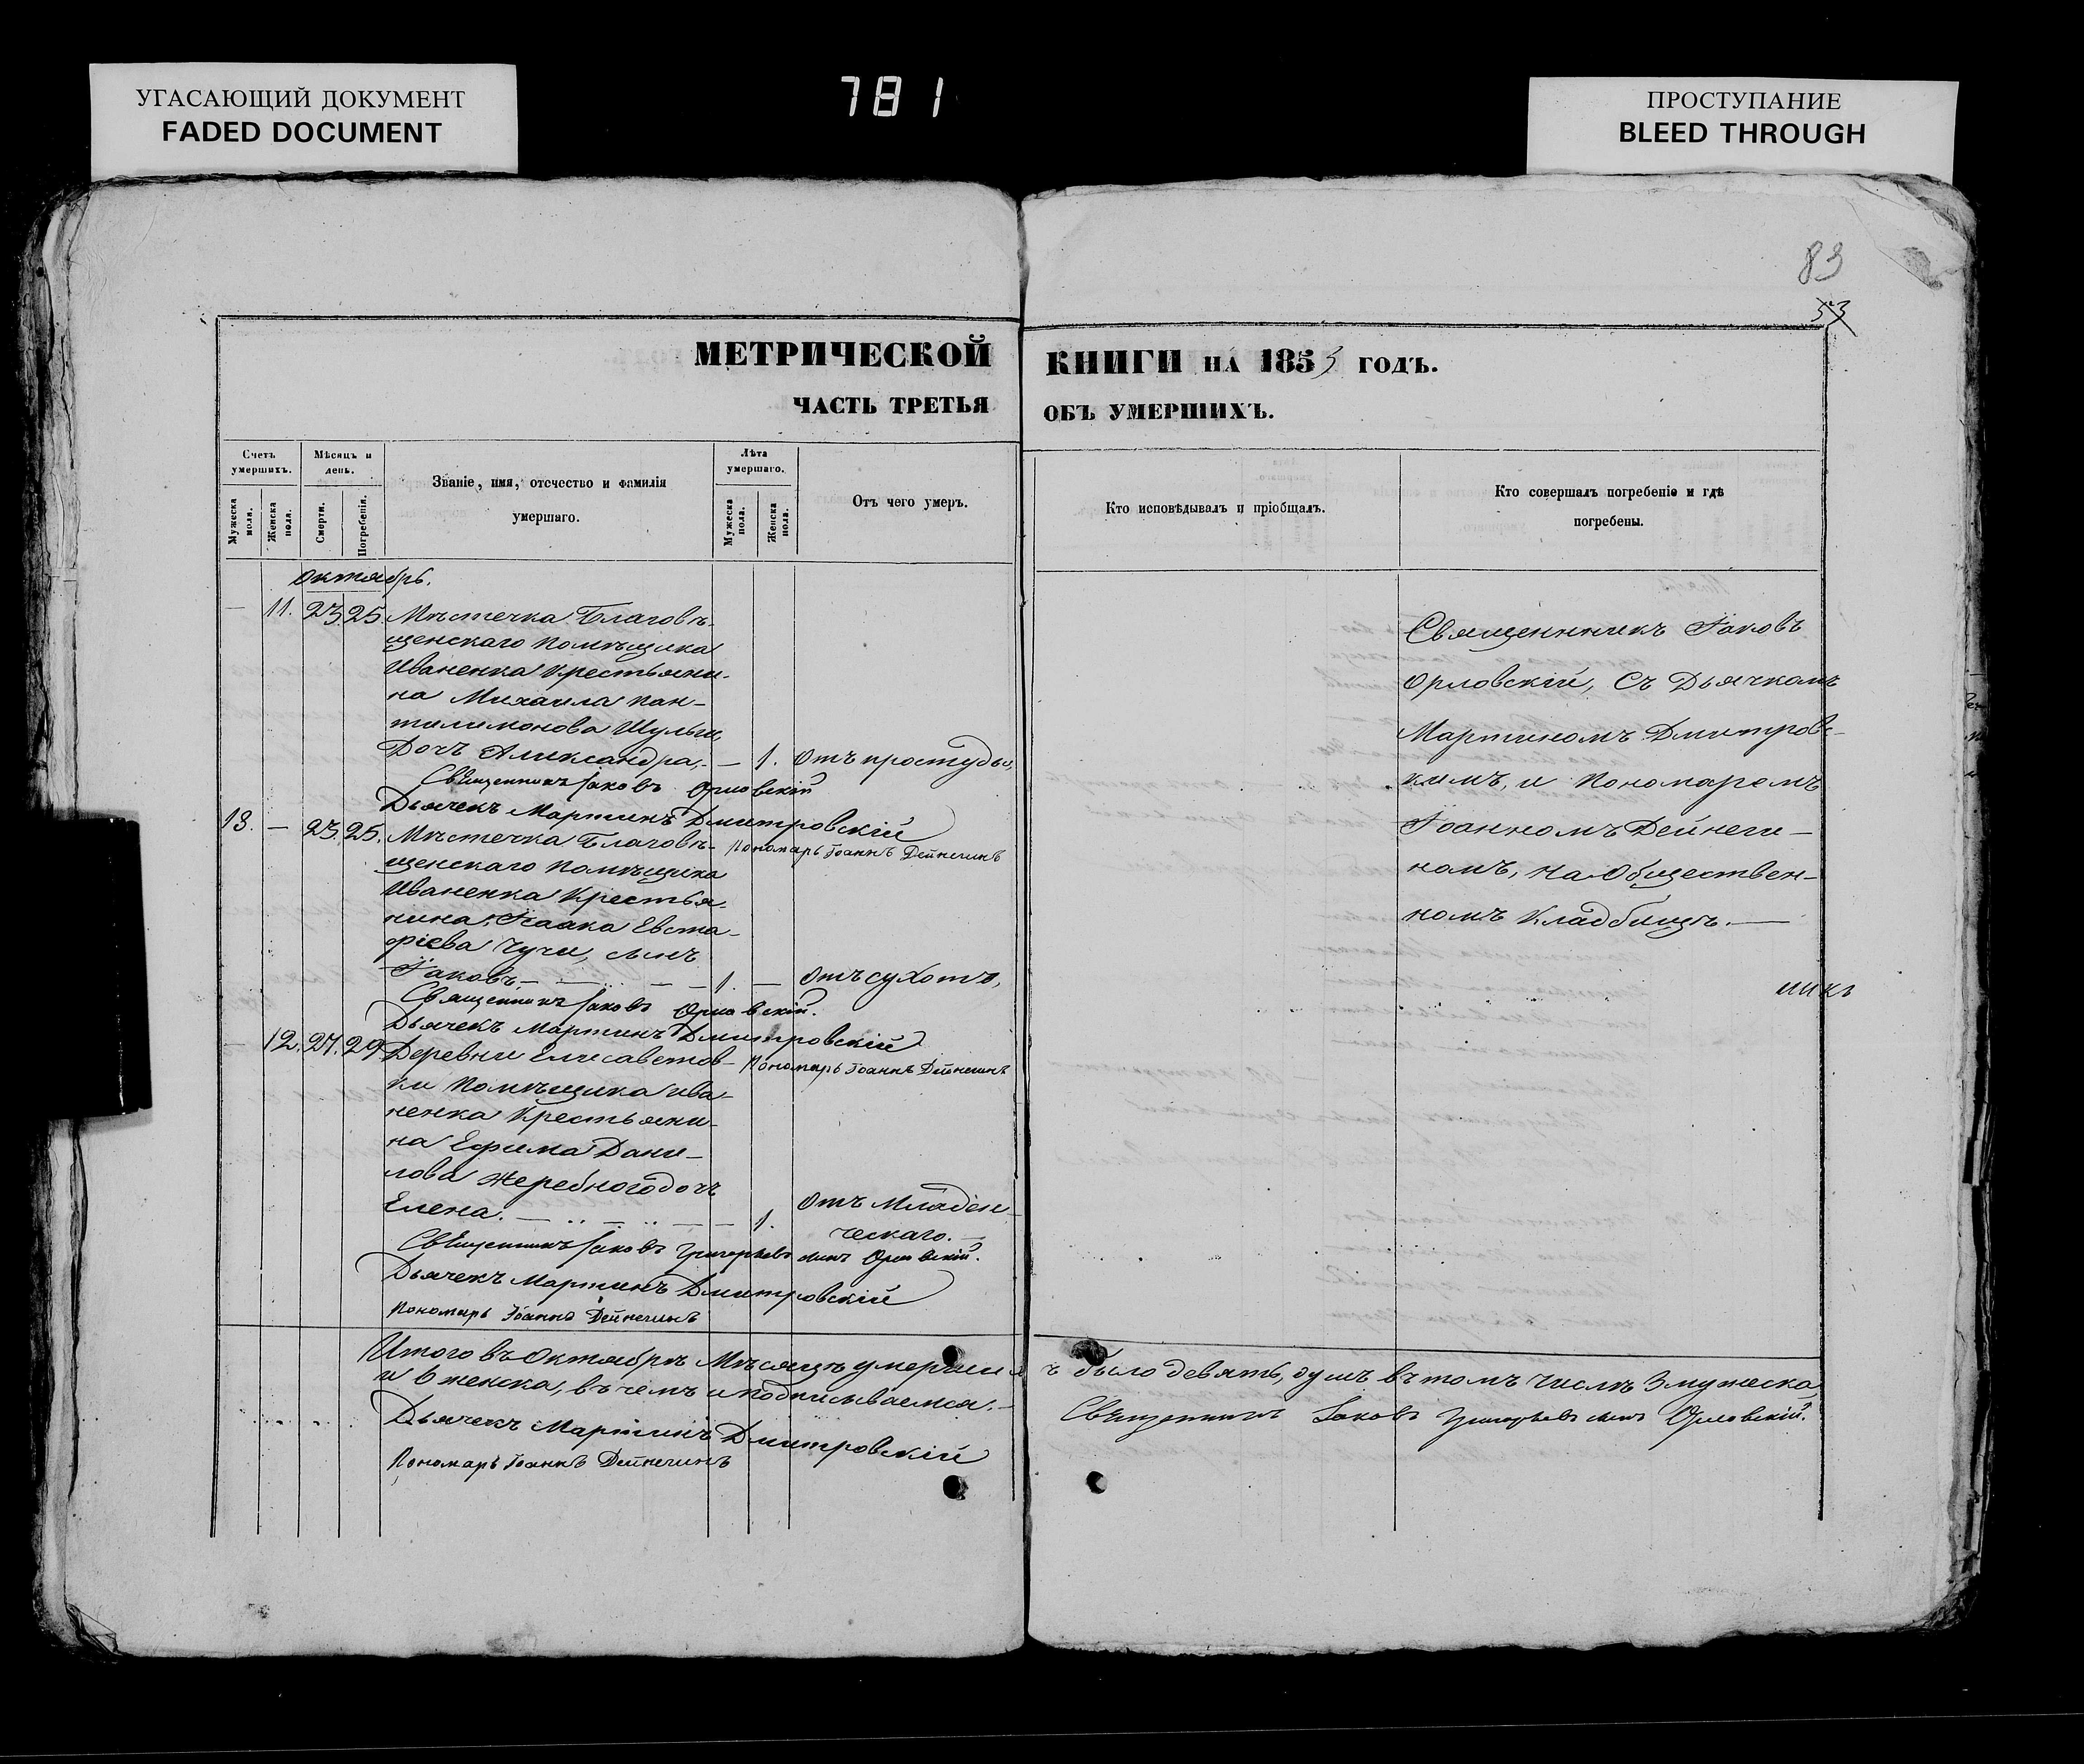 УГАСАЮЩИЙ ДОКУМЕНТ
FADED DOCUMENT
781
ПРОСТУПАНИЕ
BLEED THROUGH
83
53
МЕТРИЧЕСКОЙ
ЧАСТЬ ТРЕТЬЯ
Счетъ умершихъ.
Мужеска пола.
Женска пола.
Мѣсяцъ и день.
Смерти.
Погребенія.
Званіе, имя, отечество и фамилія
умершаго.
Лѣта умершаго.
Мужеска пола.
Женска пола.
Отъ чего умеръ.
Октябрь.
— 11. 23. 25. Мѣстечка Благовѣ-
щенскаго помѣщика
Иваненка крестьяни-
на Михаила Пан-
тилимонова Шульги
Дочъ Александра, — 1. Отъ простуды,
Священникъ Іаковъ Орловскій
Дьячекъ Мартинъ Дмитровскій
Пономарь Іоаннъ Дейнегинъ
13. — 23. 25. Мѣстечка Благовѣ-
щенскаго помѣщика
Иваненка крестья-
нина Ісаака Евста-
фіева Чучи, сынъ
Іаковъ, — 1. — Отъ сухотъ,
Священникъ Іаковъ Орловскій.
Дьячекъ Мартинъ Дмитровскій
Пономарь Іоаннъ Дейнегинъ
— 12. 27. 29. Деревни Елисаветов-
ки помѣщика Ива-
ненка крестьяни-
на Ефима Дани-
лова Жеребного дочъ
Елена. — 1. Отъ Младен-
ческаго. —
Священникъ Іаковъ Григорьевъ сынъ Орловскій.
Дьячекъ Мартинъ Дмитровскій
Пономарь Іоаннъ Дейнегинъ
Итого въ Октябрѣ Мѣсяцѣ умершихъ
и 6 женска, въ чемъ и подписываемся. —
Дьячекъ Мартинъ Дмитровскій
Пономарь Іоаннъ Дейнегинъ
КНИГИ НА 1853 ГОДЪ.
ОБЪ УМЕРШИХЪ.
Кто исповѣдывалъ и пріобщалъ.
Кто совершалъ погребеніе и гдѣ
погребены.
Священникъ Іаковъ
Орловскій, съ Дьячкомъ
Мартиномъ Дмитровс-
кимъ, и Пономаремъ
Іоанномъ Дейнеги-
номъ, на Обществен-
номъ кладбищѣ. —
было девять, душъ въ томъ числѣ 3 мужеска
Священникъ Іаковъ Григорьевъ сынъ Орловскій.